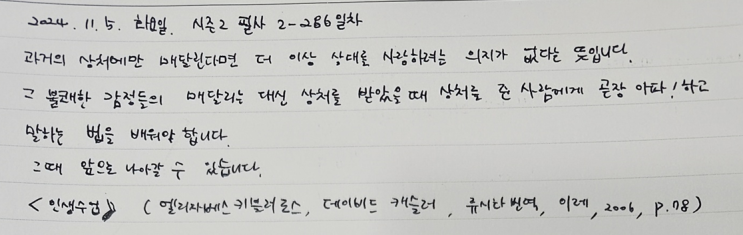 2024. 11. 5. 화요일. 시즌2 필사 2-286일차
과거의 상처에만 매달린다면 더 이상 상대를 사랑하려는 의지가 없다는 뜻입니다.
그 불쾌한 감정들의 매달리는 대신 상처를 받았을때 상처를 준 사람에게 곧장 아파! 하고
말하는 법을 배워야 합니다.
그때 앞으로 나아갈 수 있습니다.
<인생수업> (엘리자베스 퀴블러 로스, 데이비드 케슬러, 류시화 번역, 이레, 2006, p.78)